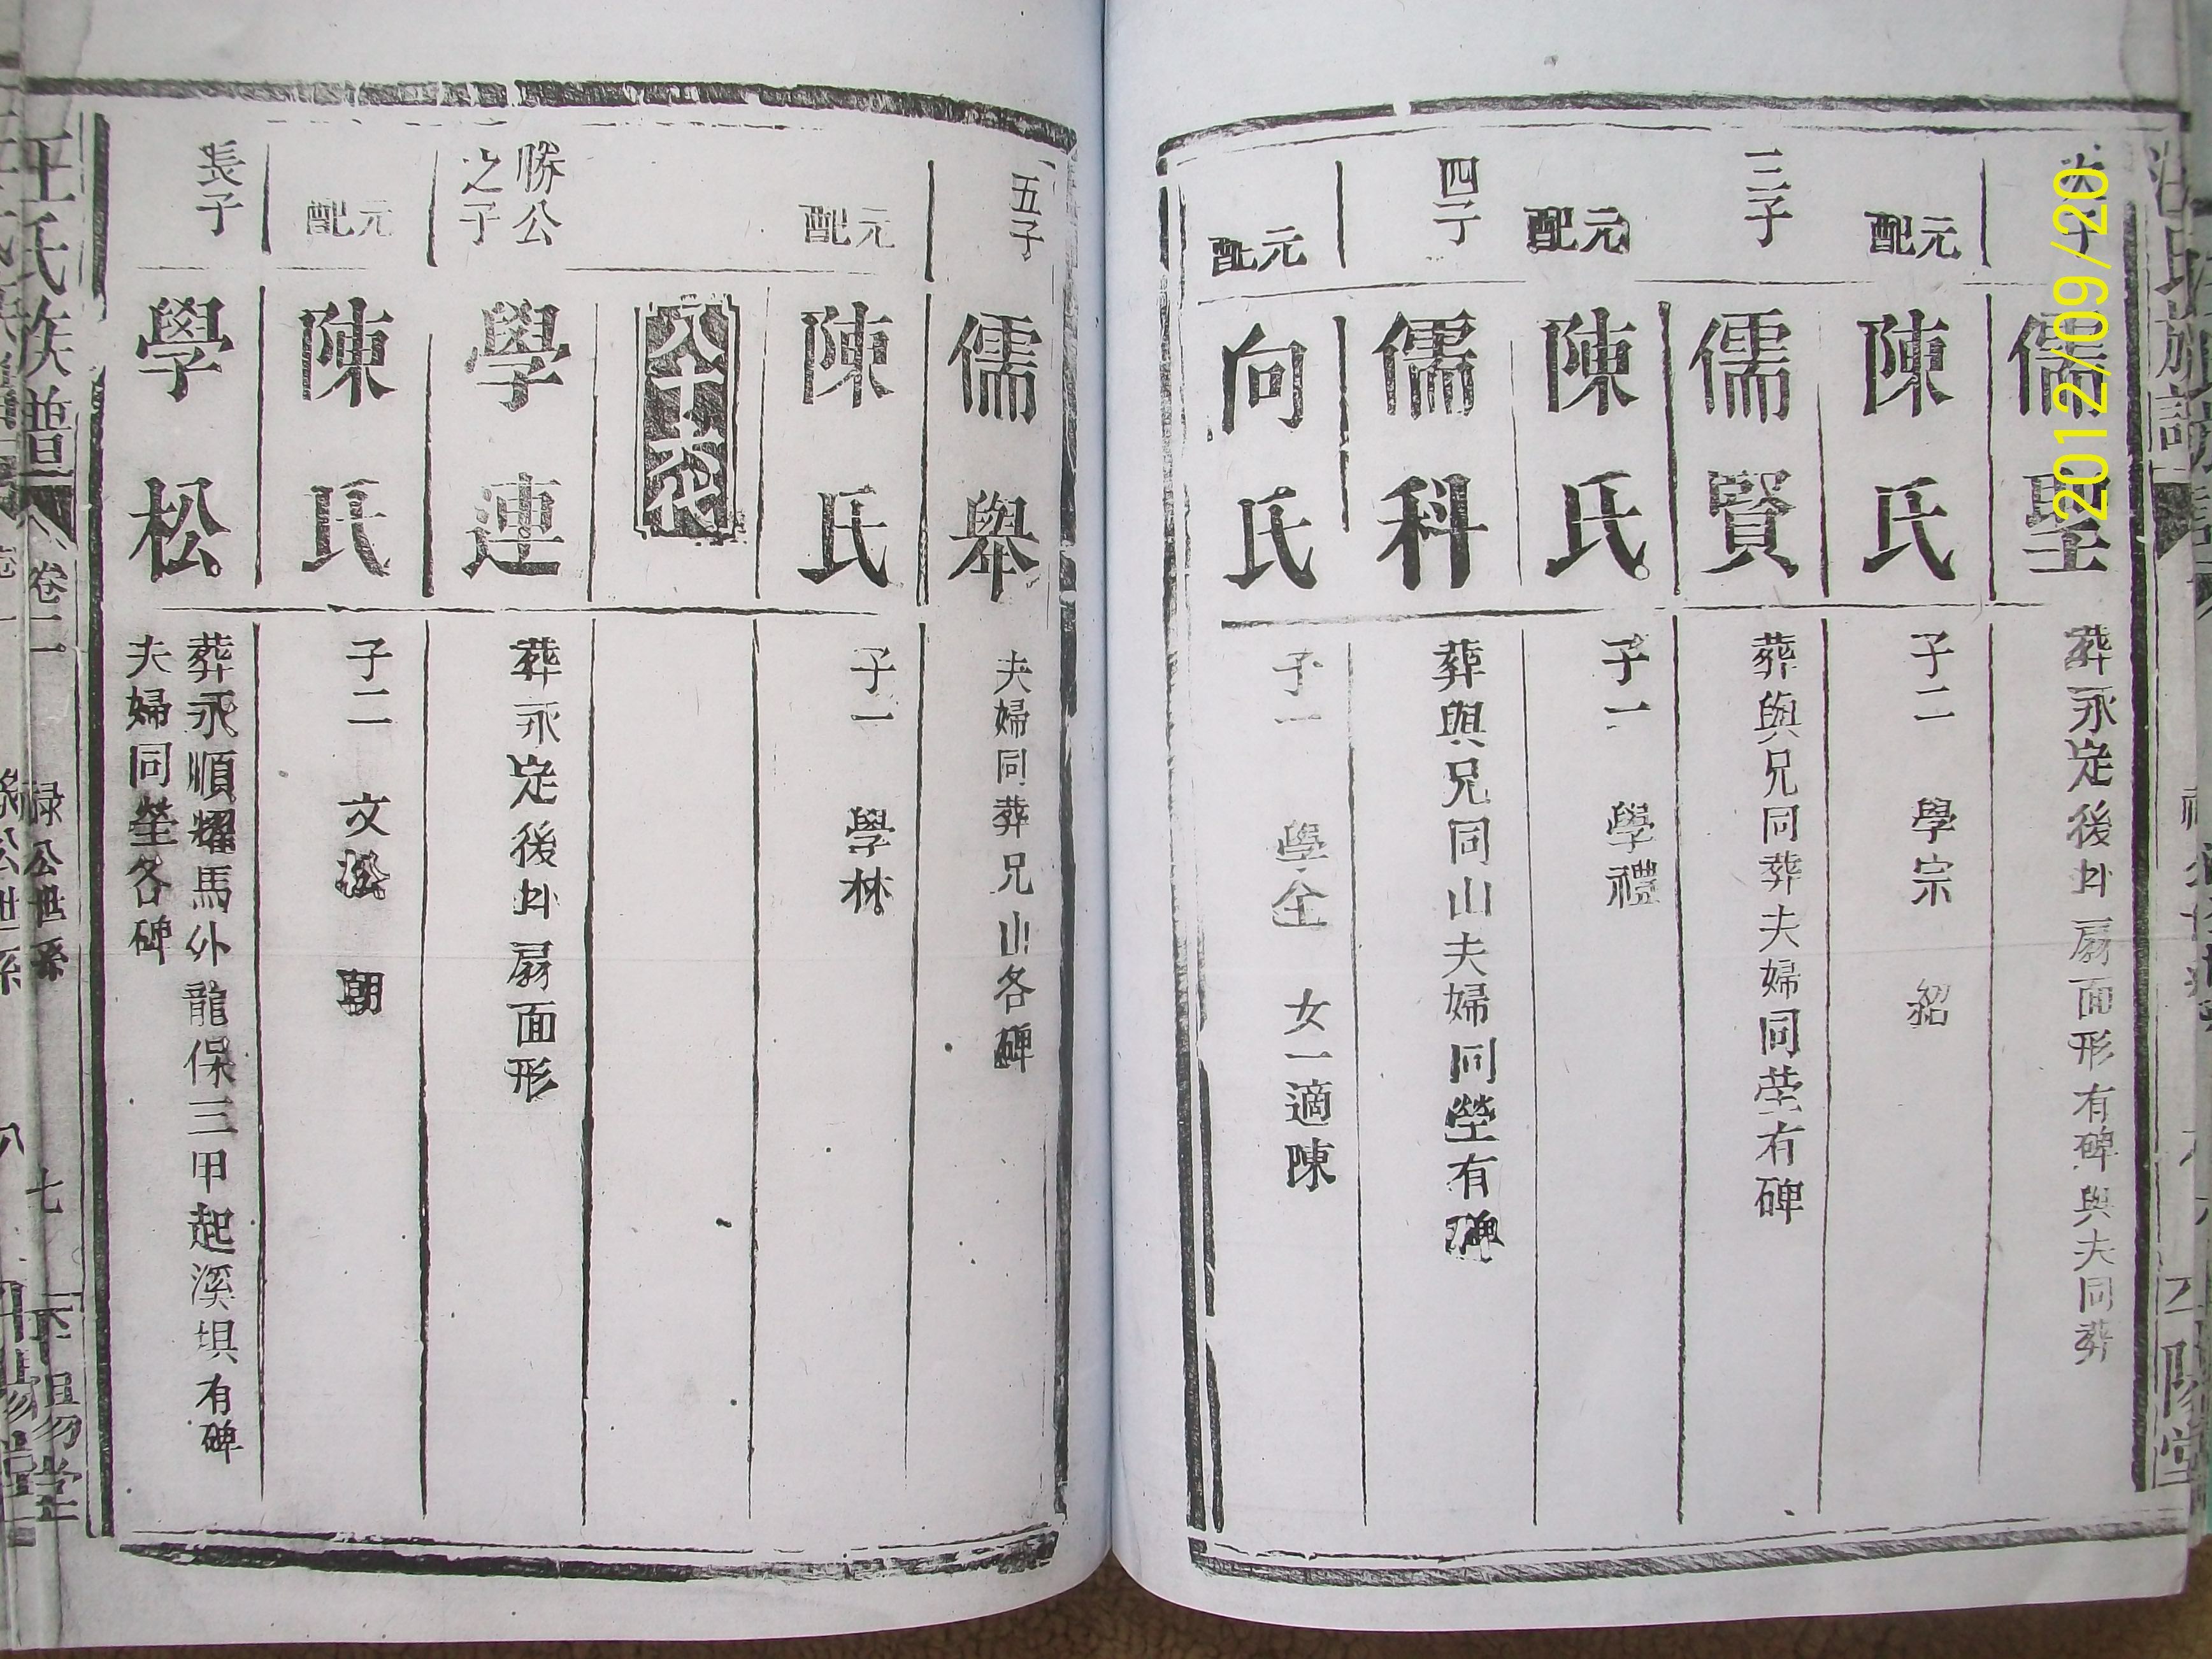 儒聖
葬永定後山扇面形有碑與夫同葬
元配
陳氏
子二 學宗 紹
三子
儒賢
葬與兄同葬夫婦同塋有碑
元配
陳氏
子一 學禮
四子
儒科
葬與兄同山夫婦同塋有碑
元配
向氏
子一 學全 女一適陳
五子
儒舉
夫婦同葬兄山各碑
元配
陳氏
子一 學林
八十六代
勝公
之子
學連
葬永定後山扇面形
元配
陳氏
子二 文松 朝
長子
學松
葬永順耀馬外龍保三甲起溪垻有碑
夫婦同塋各碑
汪氏族譜 卷二 禄公世系 七 平陽堂
2012/09/20